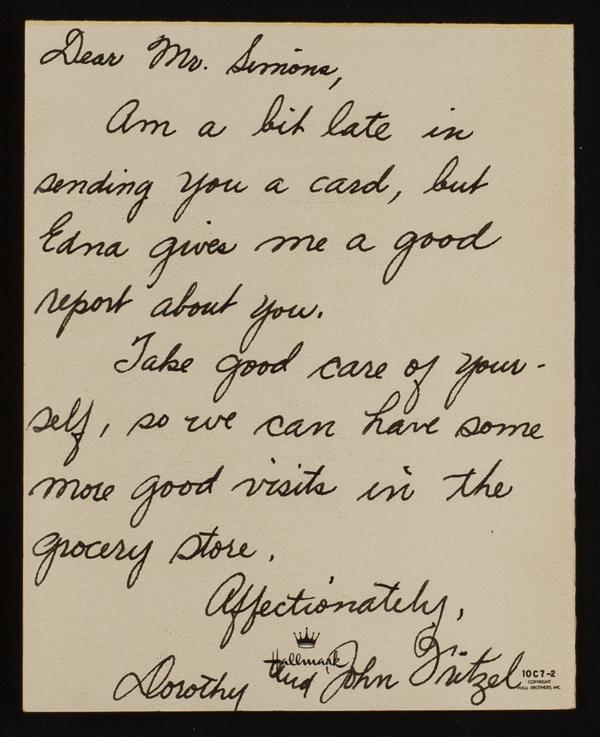 Dear Mr. Simons,
Am a bit late in
sending you a card, but
Edna gives me a good
report about you.
Take good care of your-
self, so we can have some
more good visits in the
grocery store.
Affectionately,
Hallmark
Dorothy and John Fritzel
10C7-2
COPYRIGHT
HALL BROTHERS, INC.